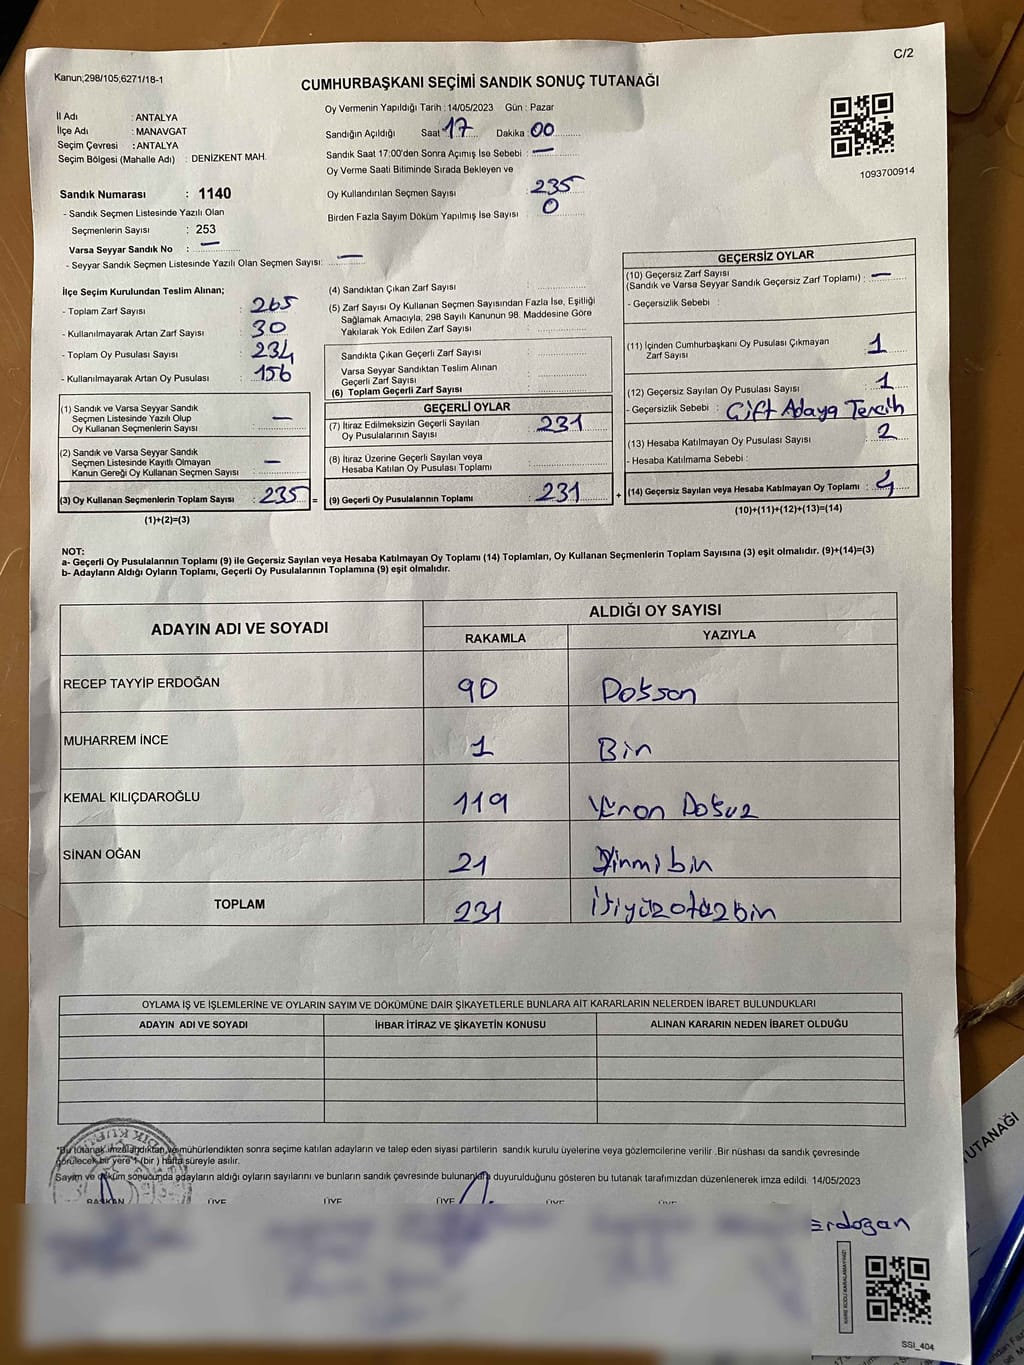 C/2
Kanun;298/105,6271/18-1
CUMHURBAŞKANI SEÇİMİ SANDIK SONUÇ TUTANAĞI
İl Adı : ANTALYA
İlçe Adı : MANAVGAT
Seçim Çevresi : ANTALYA
Seçim Bölgesi (Mahalle Adı) : DENİZKENT MAH.
Sandık Numarası : 1140
- Sandık Seçmen Listesinde Yazılı Olan
Seçmenlerin Sayısı : 253
Varsa Seyyar Sandık No : —
- Seyyar Sandık Seçmen Listesinde Yazılı Olan Seçmen Sayısı: —
Oy Vermenin Yapıldığı Tarih : 14/05/2023 Gün : Pazar
Sandığın Açıldığı Saat 17 Dakika : 00
Sandık Saat 17:00'den Sonra Açımış İse Sebebi : —
Oy Verme Saati Bitiminde Sırada Bekleyen ve
Oy Kullandırılan Seçmen Sayısı 235
Birden Fazla Sayım Döküm Yapılmış İse Sayısı 0
1093700914
İlçe Seçim Kurulundan Teslim Alınan;
- Toplam Zarf Sayısı : 265
- Kullanılmayarak Artan Zarf Sayısı : 30
- Toplam Oy Pusulası Sayısı : 234
- Kullanılmayarak Artan Oy Pusulası : 156
(1) Sandık ve Varsa Seyyar Sandık
Seçmen Listesinde Yazılı Olup
Oy Kullanan Seçmenlerin Sayısı : —
(2) Sandık ve Varsa Seyyar Sandık
Seçmen Listesinde Kayıtlı Olmayan
Kanun Gereği Oy Kullanan Seçmen Sayısı : —
(3) Oy Kullanan Seçmenlerin Toplam Sayısı : 235 =
(1)+(2)=(3)
(4) Sandıktan Çıkan Zarf Sayısı :
(5) Zarf Sayısı Oy Kullanan Seçmen Sayısından Fazla İse, Eşitliği
Sağlamak Amacıyla, 298 Sayılı Kanunun 98. Maddesine Göre
Yakılarak Yok Edilen Zarf Sayısı :
Sandıkta Çıkan Geçerli Zarf Sayısı :
Varsa Seyyar Sandıktan Teslim Alınan
Geçerli Zarf Sayısı :
(6) Toplam Geçerli Zarf Sayısı :
GEÇERLİ OYLAR
(7) İtiraz Edilmeksizin Geçerli Sayılan
Oy Pusulalarının Sayısı : 231
(8) İtiraz Üzerine Geçerli Sayılan veya
Hesaba Katılan Oy Pusulası Toplamı :
(9) Geçerli Oy Pusulalarının Toplamı : 231 +
GEÇERSİZ OYLAR
(10) Geçersiz Zarf Sayısı
(Sandık ve Varsa Seyyar Sandık Geçersiz Zarf Toplamı) : —
- Geçersizlik Sebebi :
(11) İçinden Cumhurbaşkanı Oy Pusulası Çıkmayan
Zarf Sayısı : 1
(12) Geçersiz Sayılan Oy Pusulası Sayısı : 1
- Geçersizlik Sebebi : Çift Adaya Tercih
(13) Hesaba Katılmayan Oy Pusulası Sayısı : 2
- Hesaba Katılmama Sebebi :
(14) Geçersiz Sayılan veya Hesaba Katılmayan Oy Toplamı : 4
(10)+(11)+(12)+(13)=(14)
NOT:
a- Geçerli Oy Pusulalarının Toplamı (9) ile Geçersiz Sayılan veya Hesaba Katılmayan Oy Toplamı (14) Toplamları, Oy Kullanan Seçmenlerin Toplam Sayısına (3) eşit olmalıdır. (9)+(14)=(3)
b- Adayların Aldığı Oyların Toplamı, Geçerli Oy Pusulalarının Toplamına (9) eşit olmalıdır.
ADAYIN ADI VE SOYADI ALDIĞI OY SAYISI
RAKAMLA YAZIYLA
RECEP TAYYİP ERDOĞAN 90 Doksan
MUHARREM İNCE 1 Bin
KEMAL KILIÇDAROĞLU 119 Yüzon Dokuz
SİNAN OĞAN 21 Yirmi bin
TOPLAM 231 ikiyüzotuzbin
OYLAMA İŞ VE İŞLEMLERİNE VE OYLARIN SAYIM VE DÖKÜMÜNE DAİR ŞİKAYETLERLE BUNLARA AİT KARARLARIN NELERDEN İBARET BULUNDUKLARI
ADAYIN ADI VE SOYADI İHBAR İTİRAZ VE ŞİKAYETİN KONUSU ALINAN KARARIN NEDEN İBARET OLDUĞU
"Bu tutanak imzalandıktan ve mühürlendikten sonra seçime katılan adayların ve talep eden siyasi partilerin sandık kurulu üyelerine veya gözlemcilerine verilir .Bir nüshası da sandık çevresinde
görülecek bir yere 1 (bir ) hafta süreyle asılır.
Sayım ve döküm sonucunda adayların aldığı oyların sayılarını ve bunların sandık çevresinde bulunanlara duyurulduğunu gösteren bu tutanak tarafımızdan düzenlenerek imza edildi. 14/05/2023
BAŞKAN ÜYE ÜYE ÜYE ÜYE
Erdogan
KARE KODU KARALAMAYINIZ!
SSI_404
TUTANAĞI